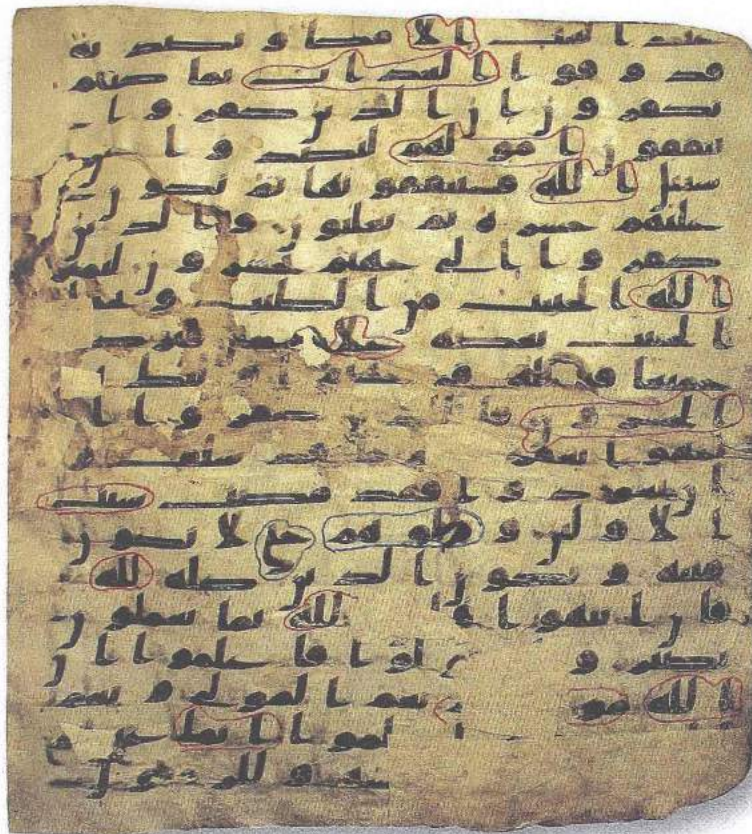 عند البيت الا مكا و تصدية
فذوقوا العذاب بما كنتم
تكفرون ان الذين كفروا
ينفقون امولهم ليصدوا عن
سبيل الله فسينفقونها ثم تكون
عليهم حسرة ثم يغلبون والذين
كفروا الى جهنم يحشرون ليميز
الله الخبيث من الطيب ويجعل
الخبيث بعضه على بعض فيركمه
جميعا فيجعله في جهنم اولئك
الخسرون كفروا ان
ينتهوا يغفر قد سلف و
ان يعودوا فقد مضت سنت
الاولين و قتلوهم حتى لا تكون
فتنة و يكون الدين كله لله
فان انتهوا الله بما يعملون
بصير و تولوا فاعلموا ان
الله نعم المولى و نعم
اعلموا انما غنمتم
و للرسول